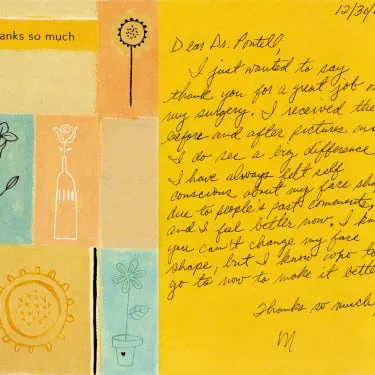 hanks so much
12/30/
Dear Dr. Pontell,
I just wanted to say
thank you for a great job on
my surgery. I received the
before and after pictures and
I do see a big difference
I have always felt self
conscious about my face sha
due to people's past comments,
and I feel better now. I kn
you can't change my face
shape, but I know who to
go to now to make it bette
Thanks so much
M